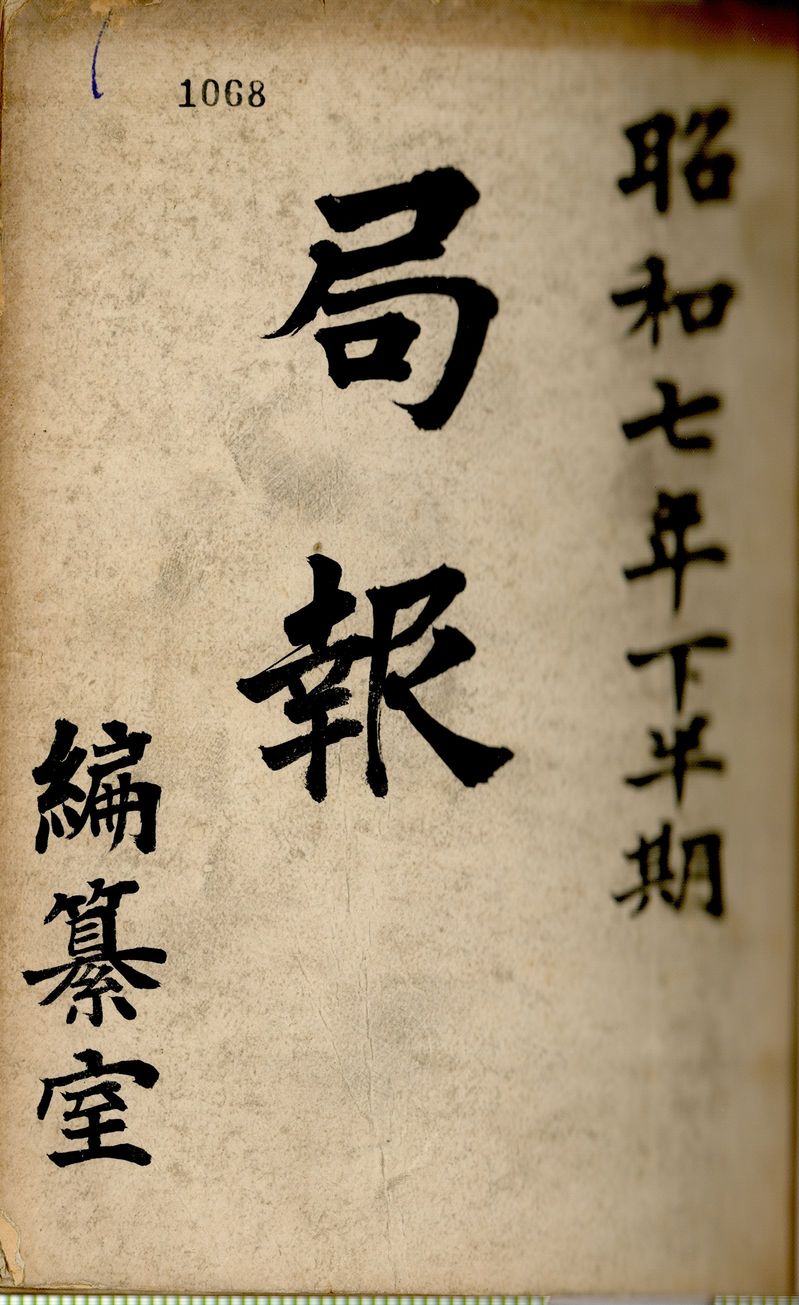 1068
昭和七年下半期
局報
編纂室